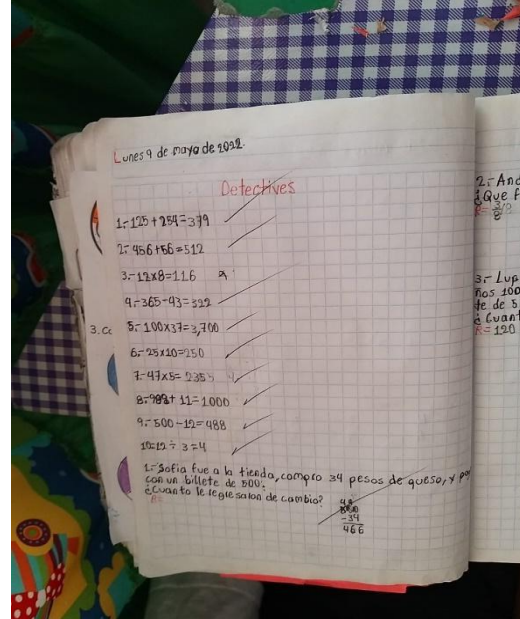 Lunes 9 de mayo de 2022.
Detectives
1.- 125 + 254 = 379
2.- 456 + 56 = 512
3.- 12x8=116
4.- 365-43=322
5.- 100x37=3,700
6.- 25x10=250
7.- 47x5= 235
8.- 989+ 11=1000
9.- 500-12=488
10=12÷3=4
1.- Sofia fue a la tienda, compro 34 pesos de queso, y
con un billete de 500.
¿Cuanto le regresaron de cambio?
R=
-34
466
3. Co
2.- And
¿Que f
R= 3/8
3.- Lup
ños 100
te de 5
¿Cuant
R= 120